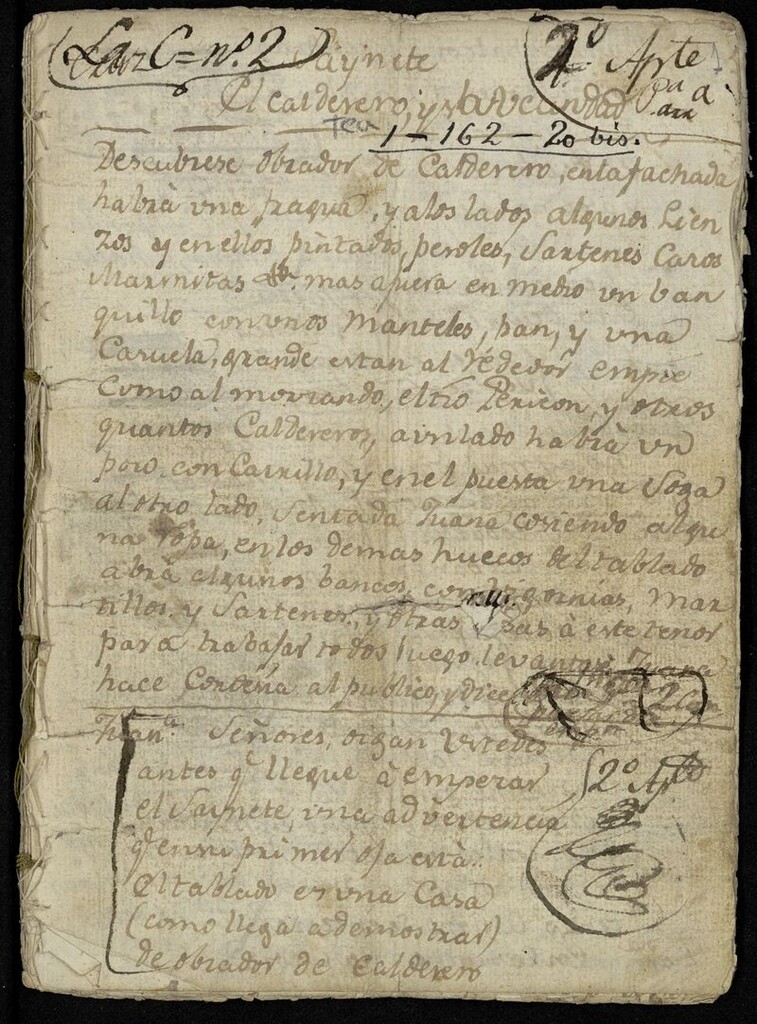 Leg C = nº. 2
Saynete
2º Apte
Pa a
El Calderero, y la Vecindad
Tea
1 - 162 - 20 bis.
Descubrese obrador de Calderero, en la fachada
habrà una fragua, y a los lados algunos Lien
zos y en ellos pintados, peroles, Sartenes Caros
Marmitas &. mas afuera en medio un ban
quillo con unos Manteles, pan, y una
Cazuela, grande estan al rededor en pie
Como almorzando, el tio Pericon, y otros
quantos Caldereros, a un lado habrà un
pozo con Carrillo, y en el puesta una Soga
al otro lado, Sentada Juana cosiendo algu
na ropa, en los demas huecos del tablado
abrà algunos bancos, con bigornias, Mar
tillos, y Sartenes, y otras cosas à este tenor
para trabajar todos luego, levantase Juana
hace Cortesia al publico, y dice
Juanª. Señores, oigan Ustedes
antes q llegue à empezar
el Saynete, una advertencia
q en su primer oja està.
El tablado es una Casa
(como llega a demostrar)
de obrador de Calderero
2º Apte